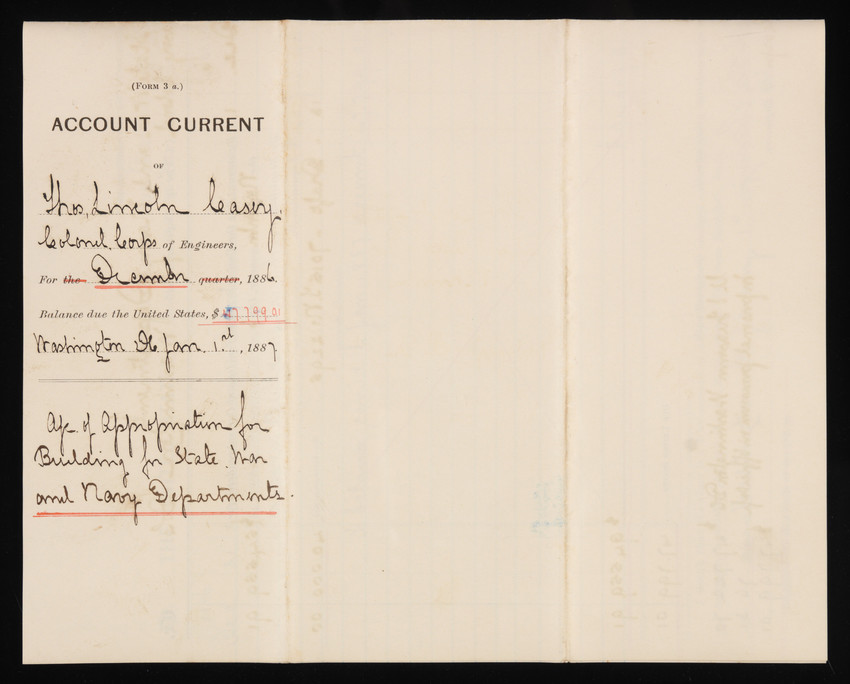 (FORM 3 a.)
ACCOUNT CURRENT
OF
Thos, Lincoln Casey,
Colonel, Corps of Engineers,
For the December quarter, 1886.
Balance due the United States, $ 7.799.01
Washington DC Jan. 1st, 1887
A/c. of Appropriation for
Building for State, War
and Navy Departments.